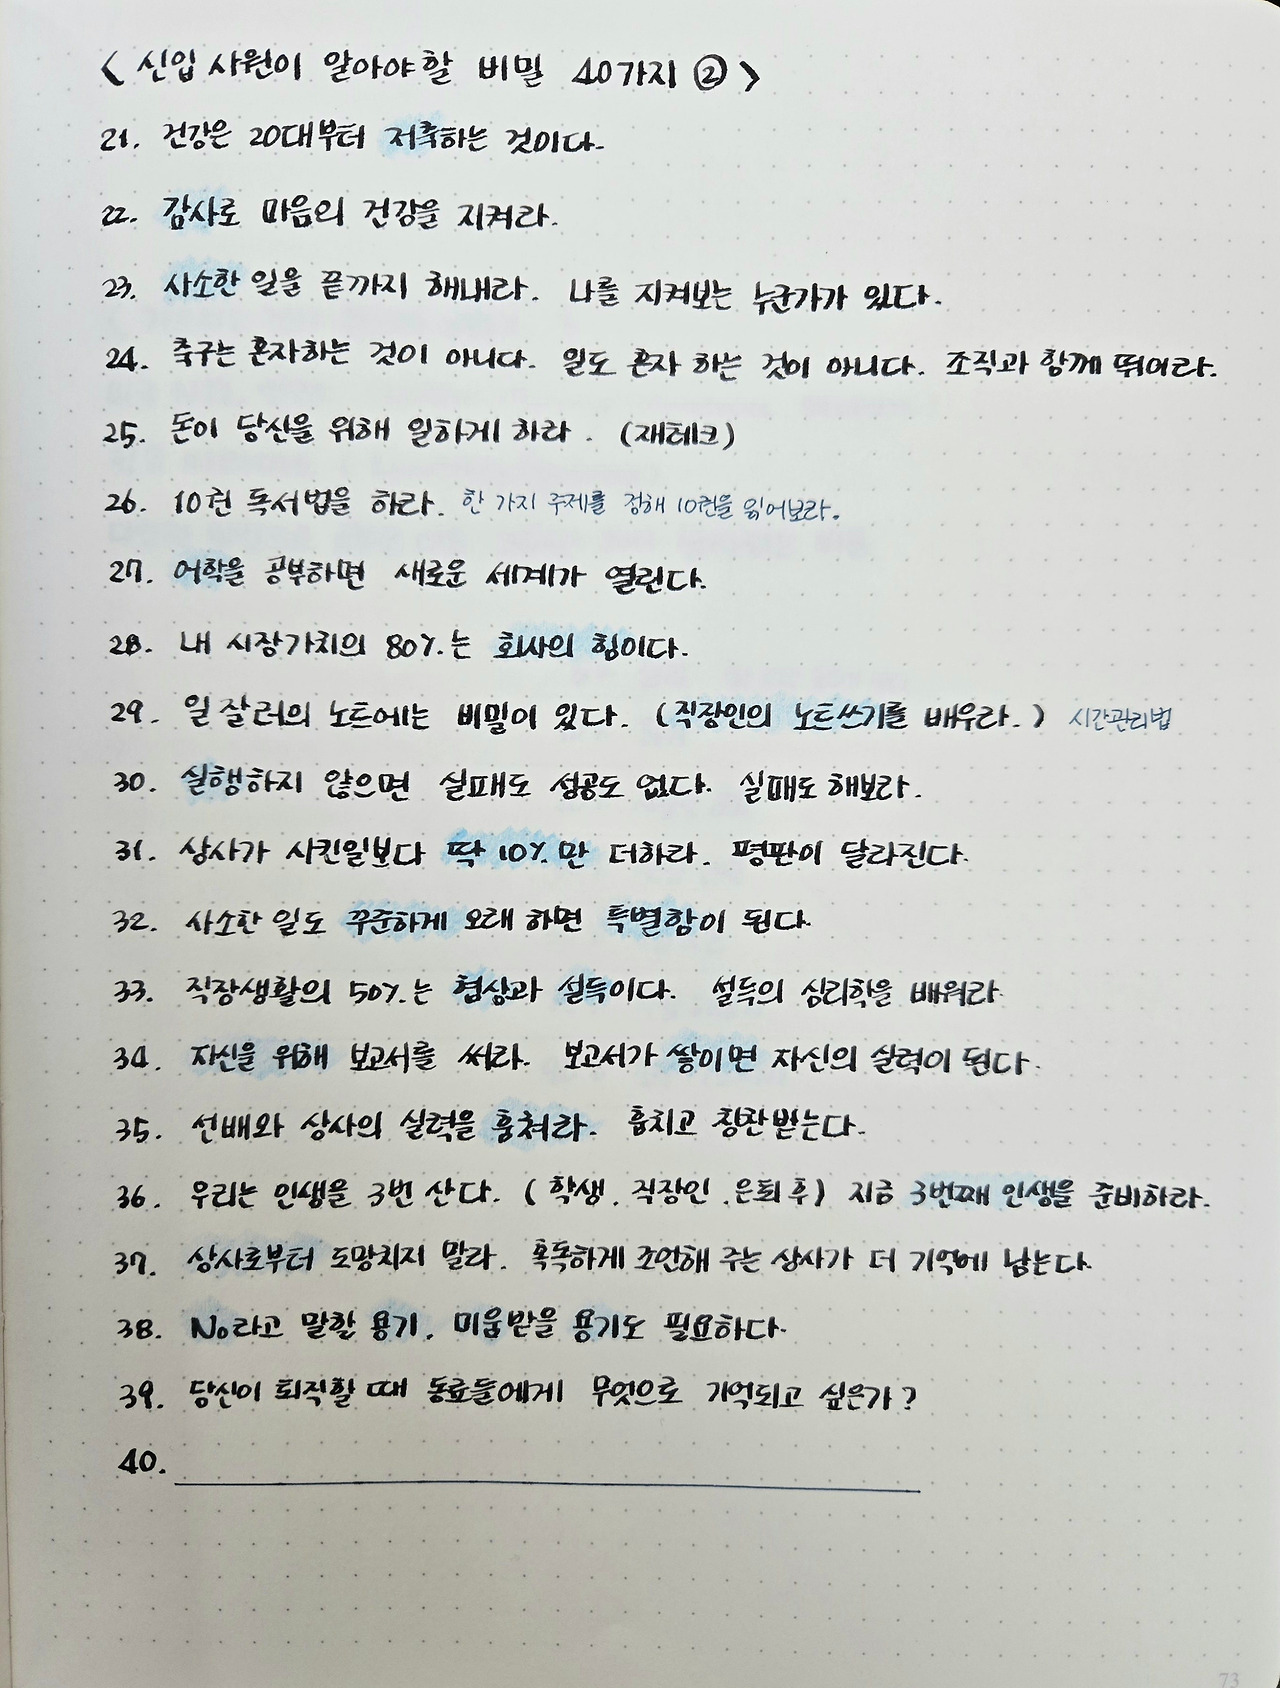 < 신입 사원이 알아야할 비밀 40가지 ② >
21. 건강은 20대부터 저축하는 것이다.
22. 감사로 마음의 건강을 지켜라.
23. 사소한 일을 끝까지 해내라. 나를 지켜보는 누군가가 있다.
24. 축구는 혼자하는 것이 아니다. 일도 혼자 하는 것이 아니다. 조직과 함께 뛰어라.
25. 돈이 당신을 위해 일하게 하라. (재테크)
26. 10권 독서법을 하라. 한 가지 주제를 정해 10권을 읽어보라.
27. 어학을 공부하면 새로운 세계가 열린다.
28. 내 시장가치의 80%는 회사의 힘이다.
29. 일 잘러의 노트에는 비밀이 있다. (직장인의 노트쓰기를 배우라.) 시간관리법
30. 실행하지 않으면 실패도 성공도 없다. 실패도 해보라.
31. 상사가 시킨일보다 딱 10%만 더하라. 평판이 달라진다.
32. 사소한 일도 꾸준하게 오래 하면 특별함이 된다.
33. 직장생활의 50%는 협상과 설득이다. 설득의 심리학을 배워라
34. 자신을 위해 보고서를 써라. 보고서가 쌓이면 자신의 실력이 된다.
35. 선배와 상사의 실력을 훔쳐라. 훔치고 칭찬받는다.
36. 우리는 인생을 3번 산다. (학생, 직장인, 은퇴 후) 지금 3번째 인생을 준비하라.
37. 상사로부터 도망치지 말라. 혹독하게 조언해 주는 상사가 더 기억에 남는다.
38. No라고 말할 용기, 미움받을 용기도 필요하다.
39. 당신이 퇴직할 때 동료들에게 무엇으로 기억되고 싶은가?
40.
73